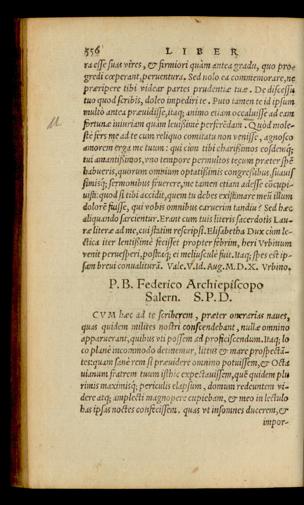 556 LIBER
ra esse suas vires, & firmiori quàm antea gradu, quo pro=
gredi cœperant, peruentura. Sed nolo ea commemorare, ne
præripere tibi videar partes prudentiæ tuæ. De discessu
tuo quod scribis, doleo impediri te. Puto tamen te id ipsum
multo antea præuidisse, itaq; animo etiam occalluisse ad eam
fortunæ iniuriam quàm leuissimè perferēdam. Quòd mole=
stè fers me ad te cum reliquo comitatu non venisse, agnosco
amorem erga me tuum: qui cùm tibi charissimos eosdemq;
tui amantissimos, vno tempore permultos tecum præter spē
habueris, quorum omnium optatissimis congressibus, suauis
simisq; sermonibus fruerere, me tamen etiam adesse cōcupi=
uisti: quod si tibi accidit, quem tu debes existimare meū illum
dolorē fuisse, qui vobis omnibus caruerim tandiu? Sed hæc
aliquando sarcientur. Erant cum tuis literis sacerdotis Lau=
ræ literæ ad me, cui statim rescripsi. Elisabetha Dux cùm le=
ctica iter lentissimè fecisset propter febrim, heri Vrbinum
venit periesperi, postáq; ei meliusculè fuit. Itaq; spes est ip=
sam breui conualiturā. Vale. V. Id. Aug. M. D. X. Vrbino.
P. B. Federico Archiepiscopo
Salern. S. P. D.
CVM hæc ad te scriberem, præter onerarias naues,
quas quidem milites nostri conscendebant, nullæ omnino
apparuerant, quibus vti possem ad proficiscendum. Itaq; lo
co planè incommodo detinemur, littus & mare prospectā=
tes: quam sanè rem si præuidere omnino potuissem, & Octa
uianum fratrem tuum isthic expectauissem, quē quidem plu
rimis maximisq; periculis elapsum, domum redeuntem vi=
dere atq; amplecti magnopere cupiebam, & meo in lectulo
has ipsas noctes confecissem. quas vt insomnes ducerem, &
impor-